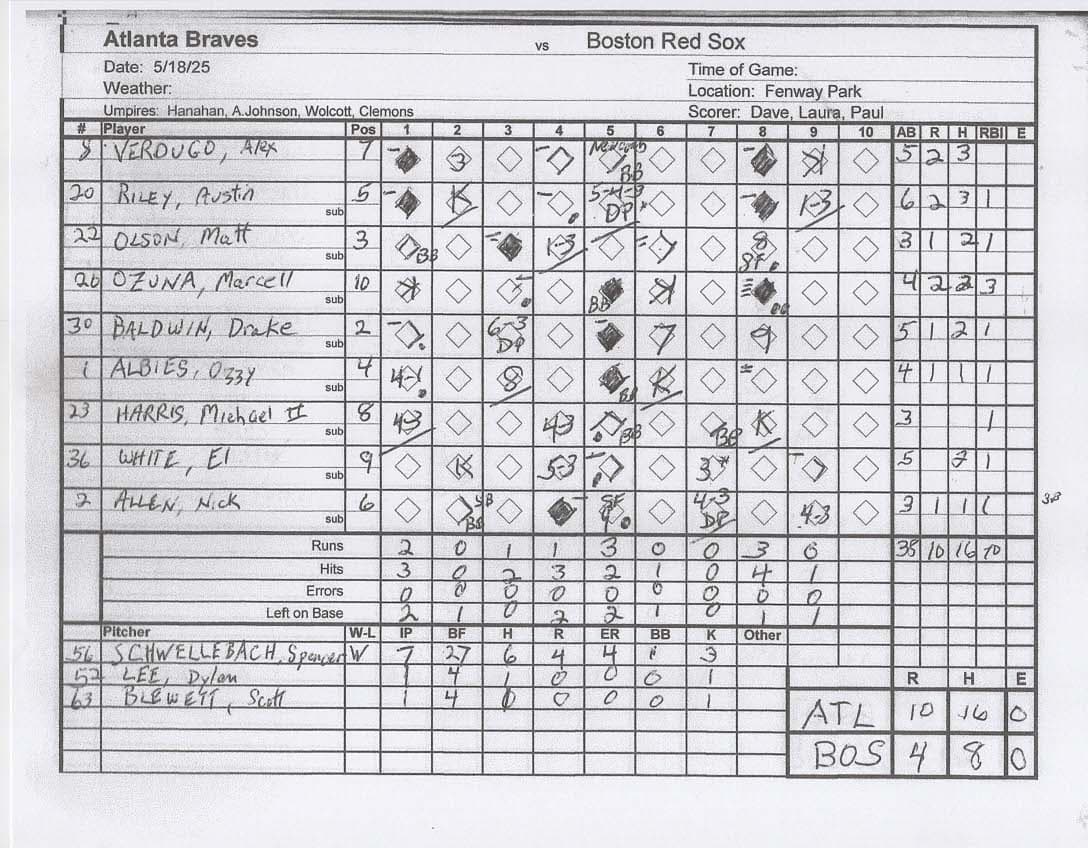 Atlanta Braves vs Boston Red Sox
Date: 5/18/25 Time of Game:
Weather: Location: Fenway Park
Umpires: Hanahan, A.Johnson, Wolcott, Clemons Scorer: Dave, Laura, Paul
# Player Pos 1 2 3 4 5 6 7 8 9 10 AB R H RBI E
8 VERDUGO, Alex 7 3 BB K 5 2 3
20 RILEY, Austin sub 5 K 5-4-3 DP K-3 6 2 3 1
22 OLSON, Matt sub 3 BB K-3 8 SF 3 1 2 1
20 OZUNA, Marcell sub 10 K BB K 4 2 2 3
30 BALDWIN, Drake sub 2 6-3 DP 7 9 5 1 2 1
1 ALBIES, Ozzy sub 4 4-1 8 BB K 4 1 1 1
23 HARRIS, Michael II sub 8 4-3 4-3 BB BB K 3 1
36 WHITE, El sub 9 K 5-3 3* 5 2 1
2 ALLEN, Nick sub 6 SB BB SF 9 4-3 DP 4-3 3 1 1 1
Runs 2 0 1 1 3 0 0 3 0 38 10 16 10
Hits 3 0 2 3 2 1 0 4 1
Errors 0 0 0 0 0 0 0 0 0
Left on Base 2 1 0 2 2 1 0 1 1
Pitcher W-L IP BF H R ER BB K Other
56 SCHWELLEBACH, Spencer W 7 27 6 4 4 1 3
52 LEE, Dylan 1 4 1 0 0 0 1 R H E
63 BLEWETT, Scott 1 4 0 0 0 0 1
ATL 10 16 0
BOS 4 8 0